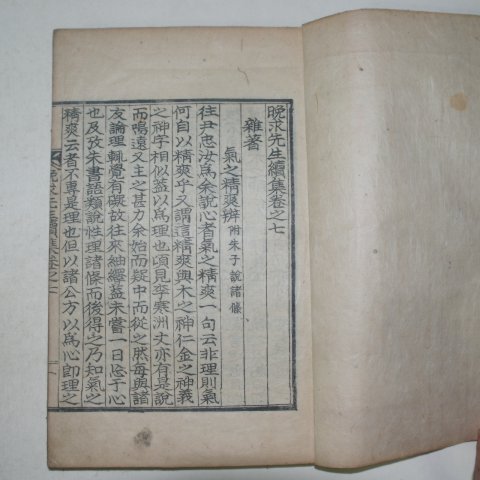 晩求先生續集卷之七
雜著
氣之精爽辨附朱子說諸條
往尹忠汝爲余說心者氣之精爽一句云非理則氣
何自以精爽乎又謂這精爽與木之神仁金之神義
之神字相似蓋以爲理也頃見李寒洲丈亦有是說
而鳴遠又主之甚力余始而疑中而從之然每與諸
友論理輒覺有礙故往來紬繹蓋未嘗一日忘于心
也及攷朱書語類說性理諸條而後得之乃知氣之
精爽云者不專是理也但以諸公方以爲心卽理之